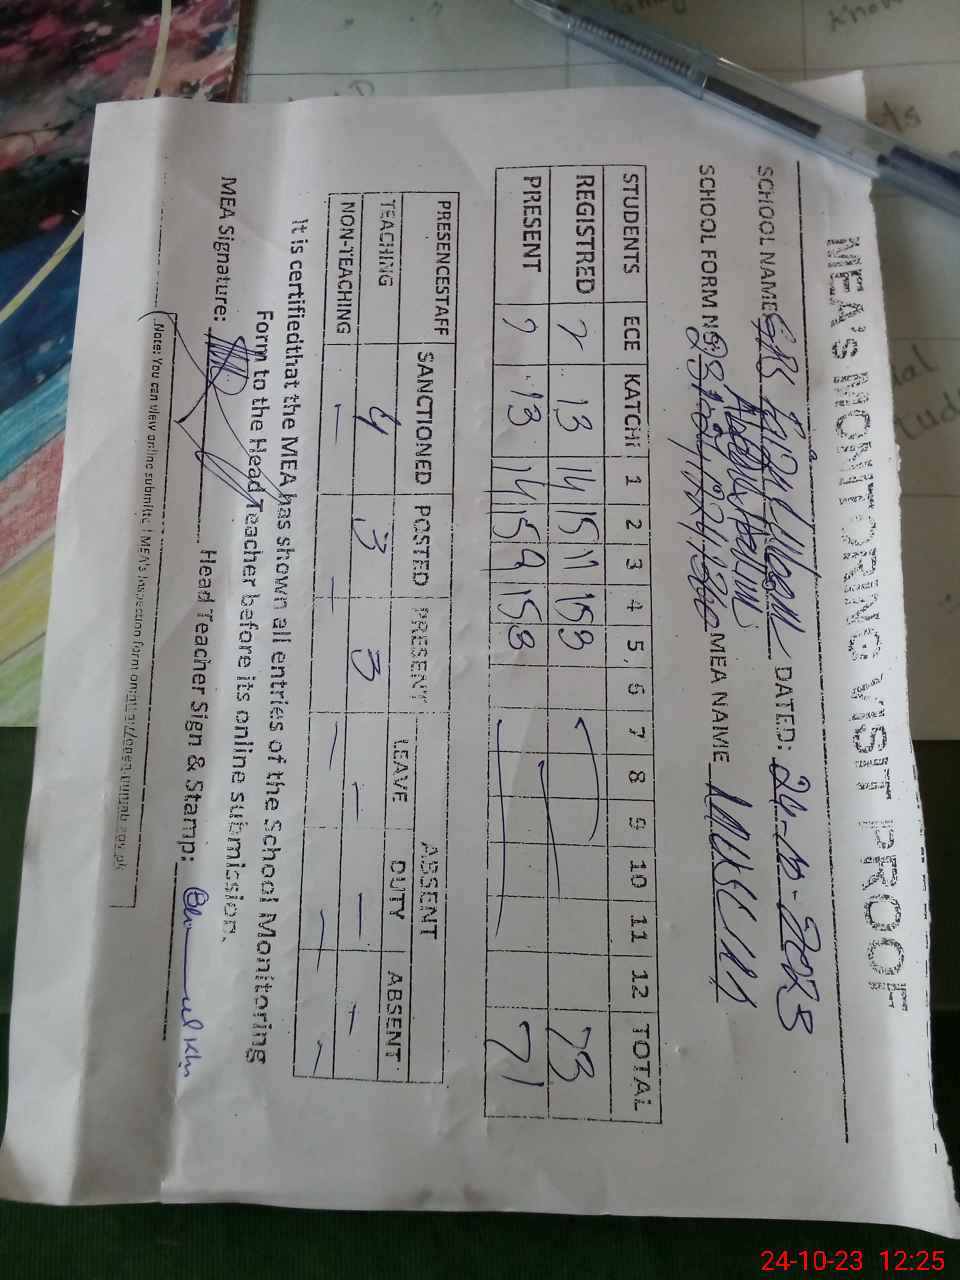 MEA's MONITORING VISIT PROOF
SCHOOL NAME GPS DATED: 24-10-2023
SCHOOL FORM N MEA NAME
STUDENTS ECE KATCHI 1 2 3 4 5 6 7 8 9 10 11 12 TOTAL
REGISTRED 7 13 14 15 11 15 3 73
PRESENT 7 13 14 15 9 15 3 71
PRESENCESTAFF SANCTIONED POSTED PRESENT ABSENT
LEAVE DUTY ABSENT
TEACHING 4 3 3 - - -
NON-TEACHING - - - - -
It is certifiedthat the MEA has shown all entries of the School Monitoring
Form to the Head Teacher before its online submission.
MEA Signature: Head Teacher Sign & Stamp:
Note: You can view online submitted MEA's Inspection form on
24-10-23 12:25